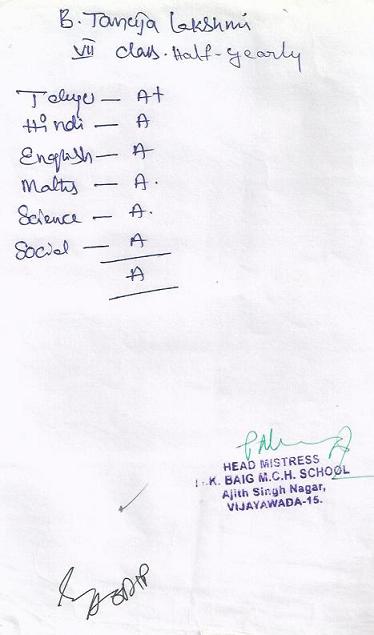 B. Taneija Lakshmi
VII class. Half-yearly
Telugu — A+
Hindi — A
English — A
Maths — A.
Science — A.
Social — A
A
HEAD MISTRESS
K. BAIG M.C.H. SCHOOL
Ajith Singh Nagar,
VIJAYAWADA-15.